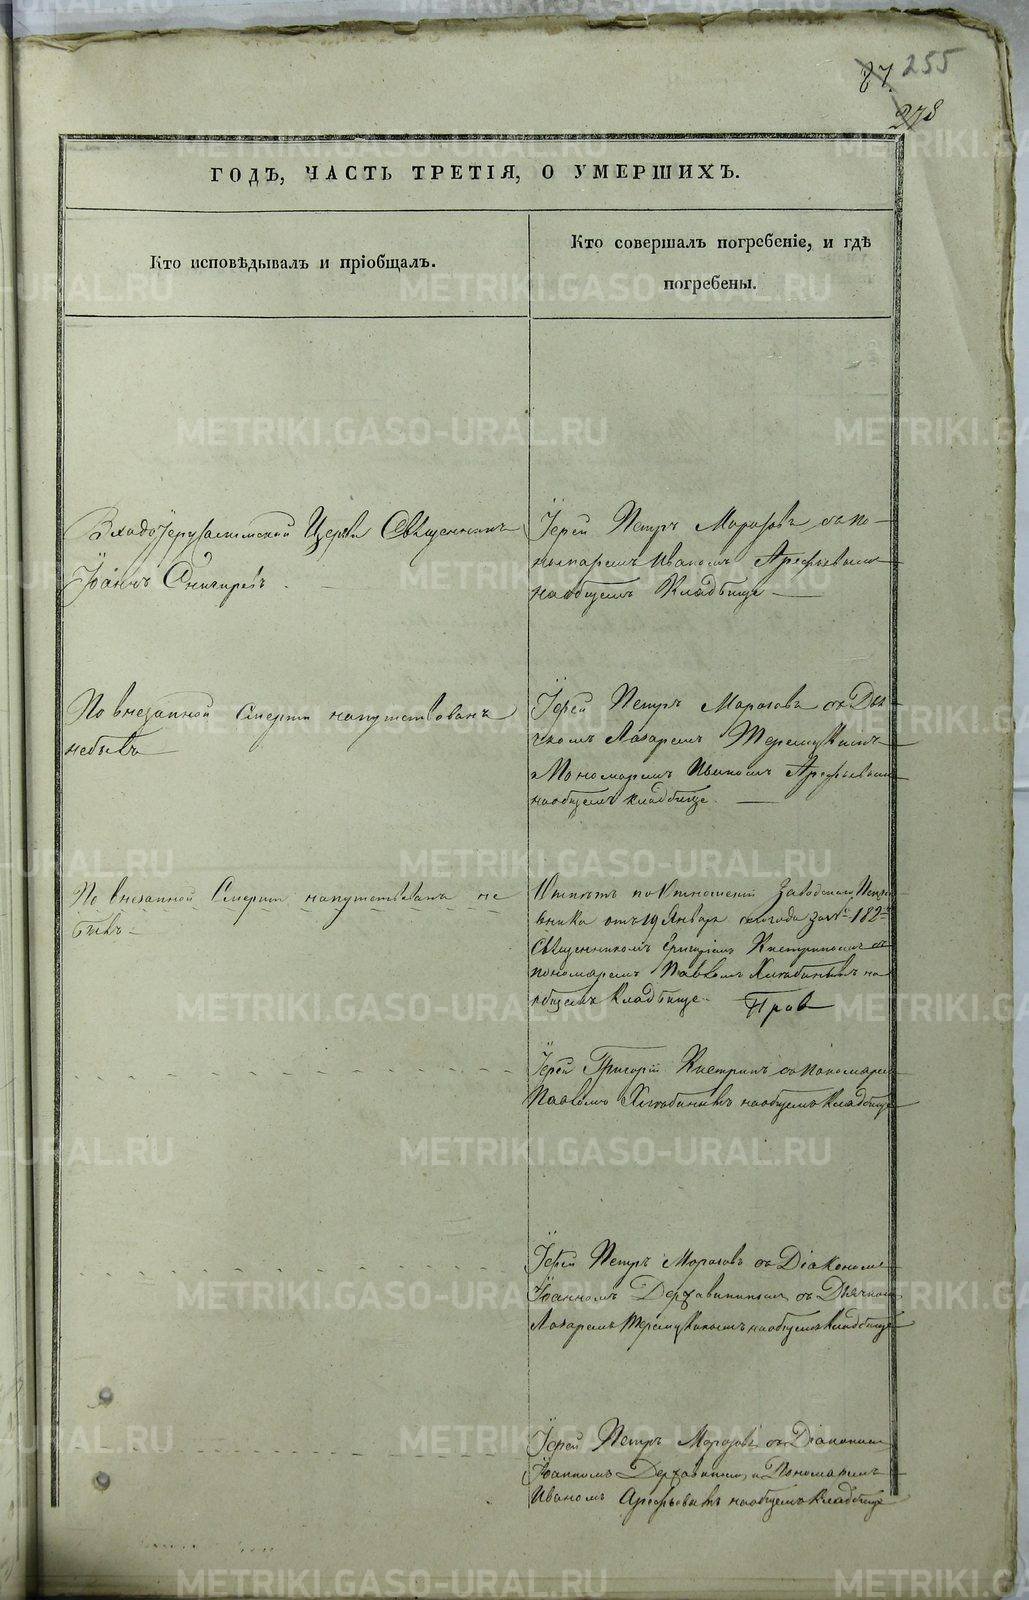 87. 255
278
ГОДѢ, ЧАСТЬ ТРЕТІЯ, О УМЕРШИХЪ.
Кто исповѣдывалъ и пріобщалъ.
Кто совершалъ погребеніе, и гдѣ
погребены.
Входоіерусалимской Церкви Священникъ
Іоаннъ Снигиревъ
Іерей Петръ Морозовъ съ по-
номаремъ Иваномъ Арефьевымъ
наобщемъ Кладбище
По внезапной Смерти напутствованъ
небылъ
Іерей Петръ Морозовъ съ Дья-
чкомъ Лазаремъ
и Пономаремъ Иваномъ Арефьевымъ
наобщемъ кладбище.
По внезапной Смерти напутствованъ не
былъ
по отношенію Заводскаго Исправ
вника отъ 19 Января сего года за № 182м
Священникомъ Григоріемъ съ
пономаремъ Павломъ Хлѣбинымъ на
общемъ Кладбище.
Іерей Григорій съ пономаремъ
Павломъ Хлѣбинымъ наобщемъ Кладбище
Іерей Петръ Морозовъ съ Діакономъ
Іоанномъ Державинымъ съ Дьячкомъ
Лазаремъ наобщемъ Кладбище
Іерей Петръ Морозовъ съ Діакономъ
Іоанномъ Державинымъ и Пономаремъ
Иваномъ Арефьевымъ наобщемъ Кладбище
METRIKI.GASO-URAL.RU